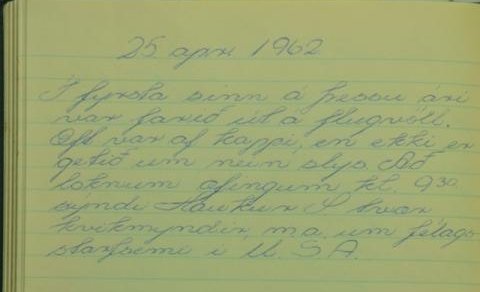 25. apr. 1962
Í fyrsta sinn á þessu ári
var farið út á flugvöll.
Æft var af kappi, en ekki er
getið um nein slys. Að
loknum æfingum kl. 9³⁰
sýndi Haukur S.
kvikmyndir, m.a. um félags
starfsemi í U.S.A.